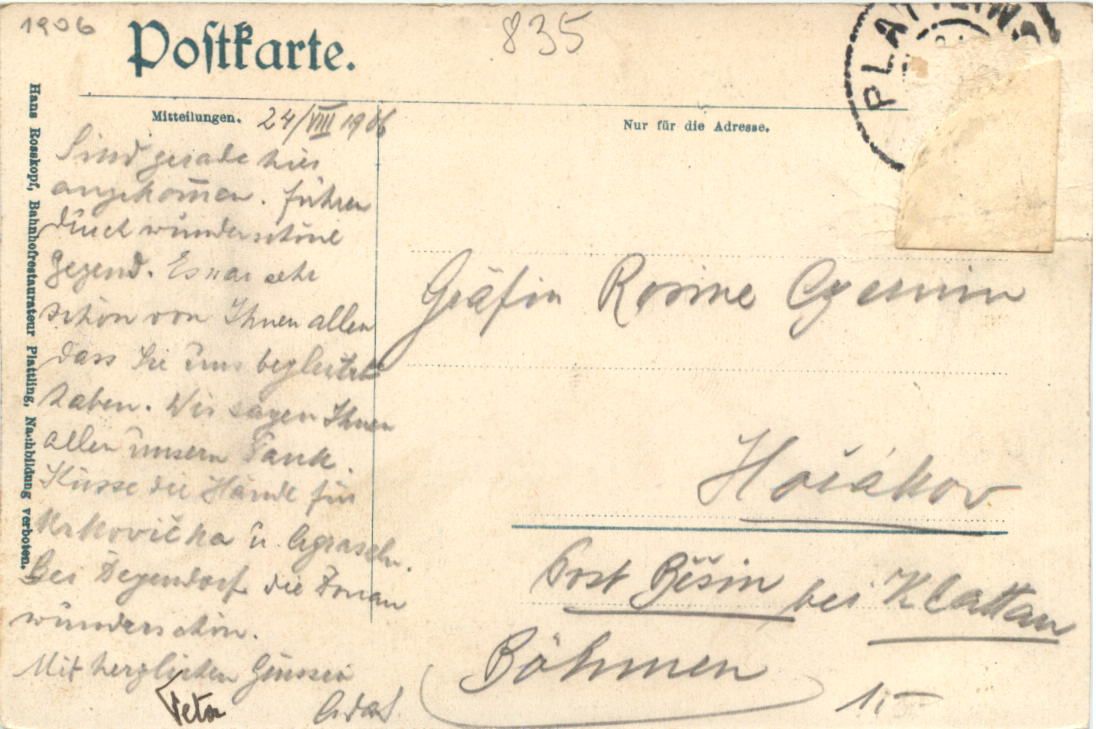 1906
835
PLATTLING
Postkarte.
Mitteilungen. 24/VIII 1906
Nur für die Adresse.
Sind gerade hier
angekom̅en. Führen
durch wunderschöne
Gegend. Es war sehr
schön von Ihnen allen
dass Sie uns begleitet
haben. Wir sagen Ihnen
allen unsern Dank.
Küsse die Hände für
Krkovička u. Agraseln.
Bei Degendorf die Donau
wunderschön.
Mit herzlichen Grüssen
Gräfin Rosine Czernin
Hořákov
Post Běšin bei Klattau
Böhmen
1,-
Hans Rosskopf, Bahnhofrestaurateur Plattling, Nachbildung verboten.